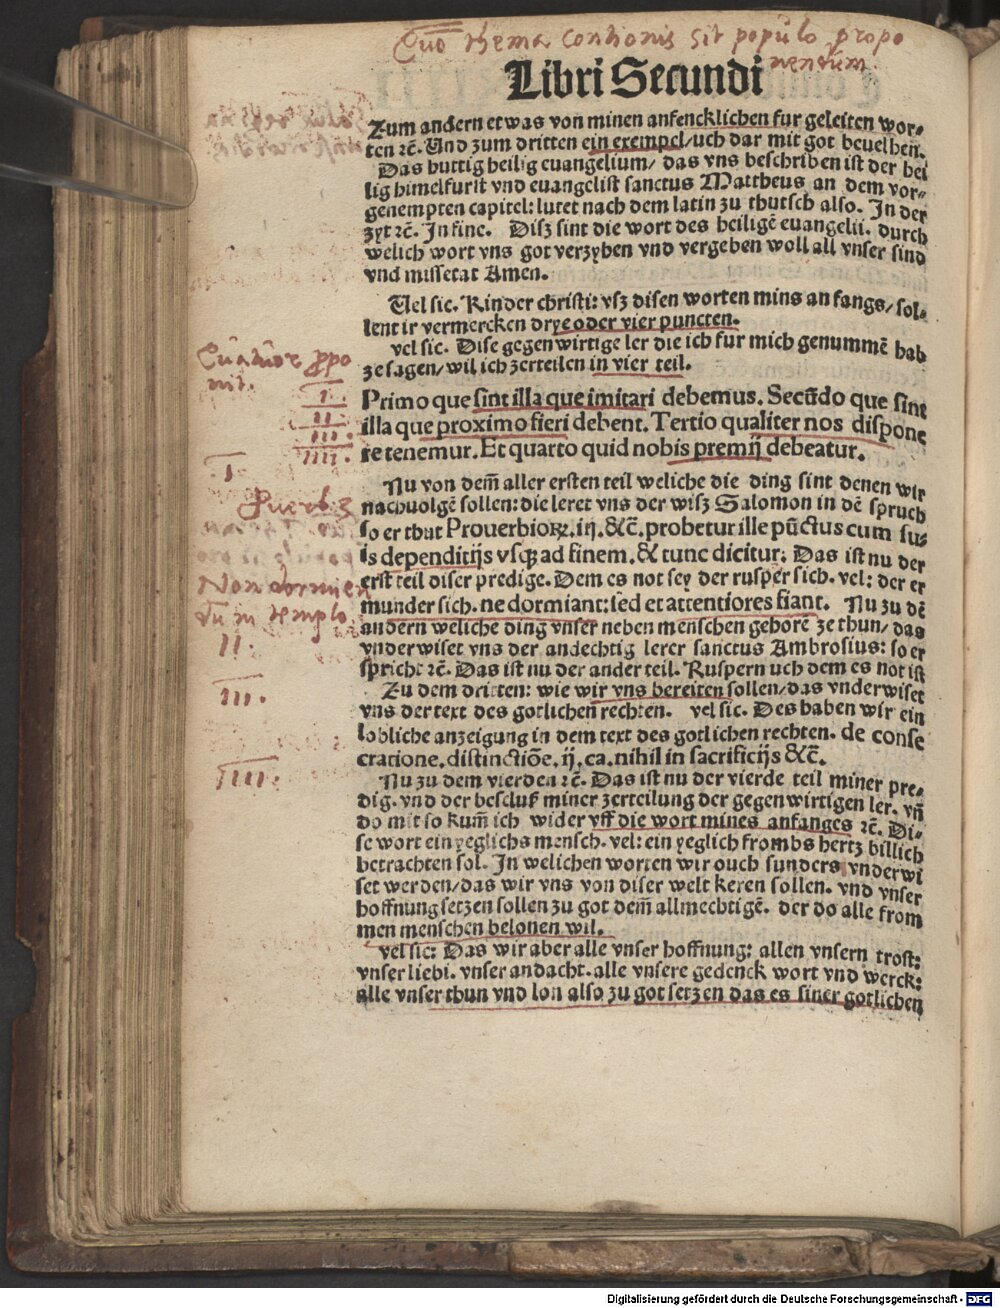 Quo thema contionis sit populo propo
nendum.
Libri Secundi
Zum andern etwas von minen anfencklichen fur geleiten wor-
ten ꝛc̄. Vnd zum dritten ein exempel/uch dar mit got beuelhen.
Das huttig heilig euangelium/ das vns beschriben ist der hei
lig himelfurst vnd euangelist sanctus Mattheus an dem vor-
genempten capitel: lutet nach dem latin zu thutsch also. In der
zyt ꝛc̄. In fine. Disz sint die wort des heiligē euangelii. durch
welich wort vns got verzyhen vnd vergeben woll all vnser sind
vnd missetat Amen.
Vel sic. Kinder christi: vsz disen worten mins anfangs/ sol-
lent ir vermercken drye oder vier puncten.
vel sic. Dise gegenwirtige ler die ich fur mich genummē hab
ze sagen/ wil ich zerteilen in vier teil.
Quatuor ꝓpo
nit.
I.
II.
III.
IIII.
Primo que sint illa que imitari debemus. Secūdo que sint
illa que proximo fieri debent. Tertio qualiter nos dispone
re tenemur. Et quarto quid nobis premij debeatur.
I.
Nu von dem̄ aller ersten teil weliche die ding sint denen wir
nachuolgē sollen: die leret vns der wisz Salomon in dē spruch
so er thut Prouerbioꝝ. iij. &c̄. probetur ille pūctus cum su-
is dependitijs vsqꝫ ad finem. & tunc dicitur: Das ist nu der
erst teil diser predige. Dem es not sey der rusper sich. vel: der er
munder sich. ne dormiant: sed et attentiores fiant. Nu zu dē
andern weliche ding vnser neben menschen gehorē ze thun/ das
vnderwiset vns der andechtig lerer sanctus Ambrosius: so er
spricht ꝛc̄. Das ist nu der ander teil. Ruspern uch dem es not ist
Prouerb 3
Non dormien
du in templo
II.
III.
Zu dem dritten: wie wir vns bereiten sollen/das vnderwiset
vns der text des gotlichen rechten. vel sic. Des haben wir ein
lobliche anzeigung in dem text des gotlichen rechten. de conse
cratione. distinctiōe. ij. ca. nihil in sacrificijs &c̄.
IIII.
Nu zu dem vierden ꝛc̄. Das ist nu der vierde teil miner pre-
dig. vnd der beschluß miner zerteilung der gegenwirtigen ler. vn̄
do mit so kum̄ ich wider vff die wort mines anfanges ꝛc̄. Di-
se wort ein yeglichs mensch. vel: ein yeglich frombs hertz billich
betrachten sol. In welichen worten wir ouch sunders vnderwi
set werden/das wir vns von diser welt keren sollen. vnd vnser
hoffnung setzen sollen zu got dem̄ allmechtigē. der do alle from
men menschen belonen wil.
vel sic: Das wir aber alle vnser hoffnung: allen vnsern trost:
vnser liebi. vnser andacht. alle vnsere gedenck wort vnd werck:
alle vnser thun vnd lon also zu got setzen das es siner gotlichen
Digitalisierung gefördert durch die Deutsche Forschungsgemeinschaft - DFG